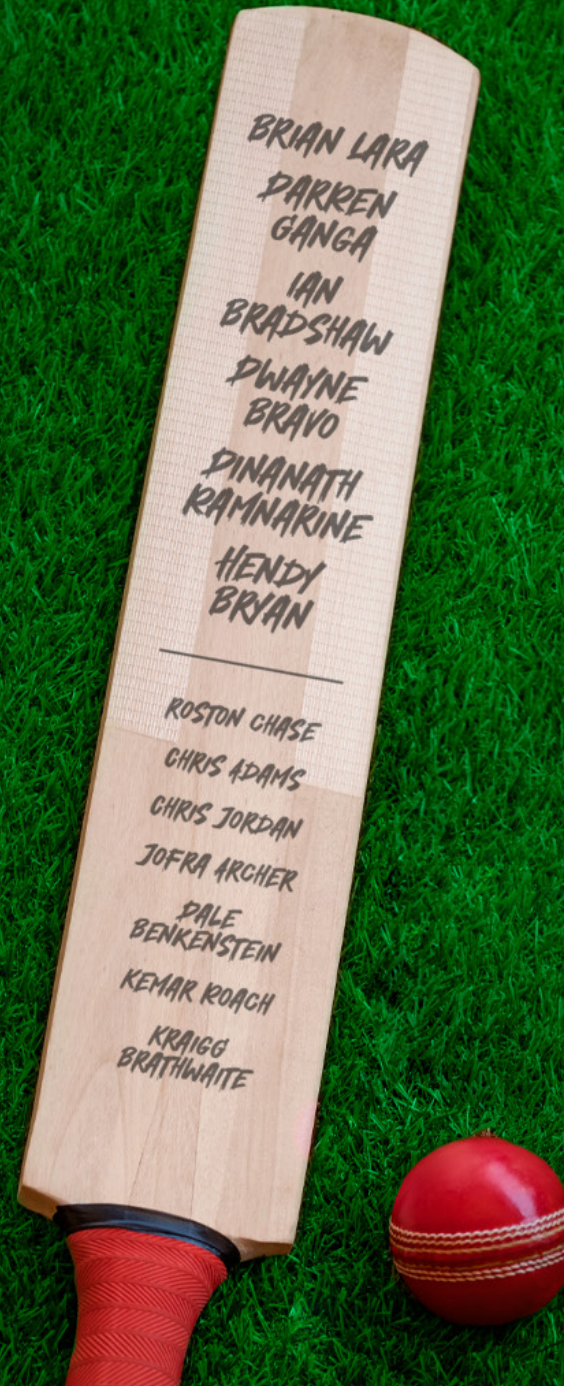 BRIAN LARA
DARREN
GANGA
IAN
BRADSHAW
DWAYNE
BRAVO
DINANATH
RAMNARINE
HENDY
BRYAN
ROSTON CHASE
CHRIS ADAMS
CHRIS JORDAN
JOFRA ARCHER
DALE
BENKENSTEIN
KEMAR ROACH
KRAIGG
BRATHWAITE